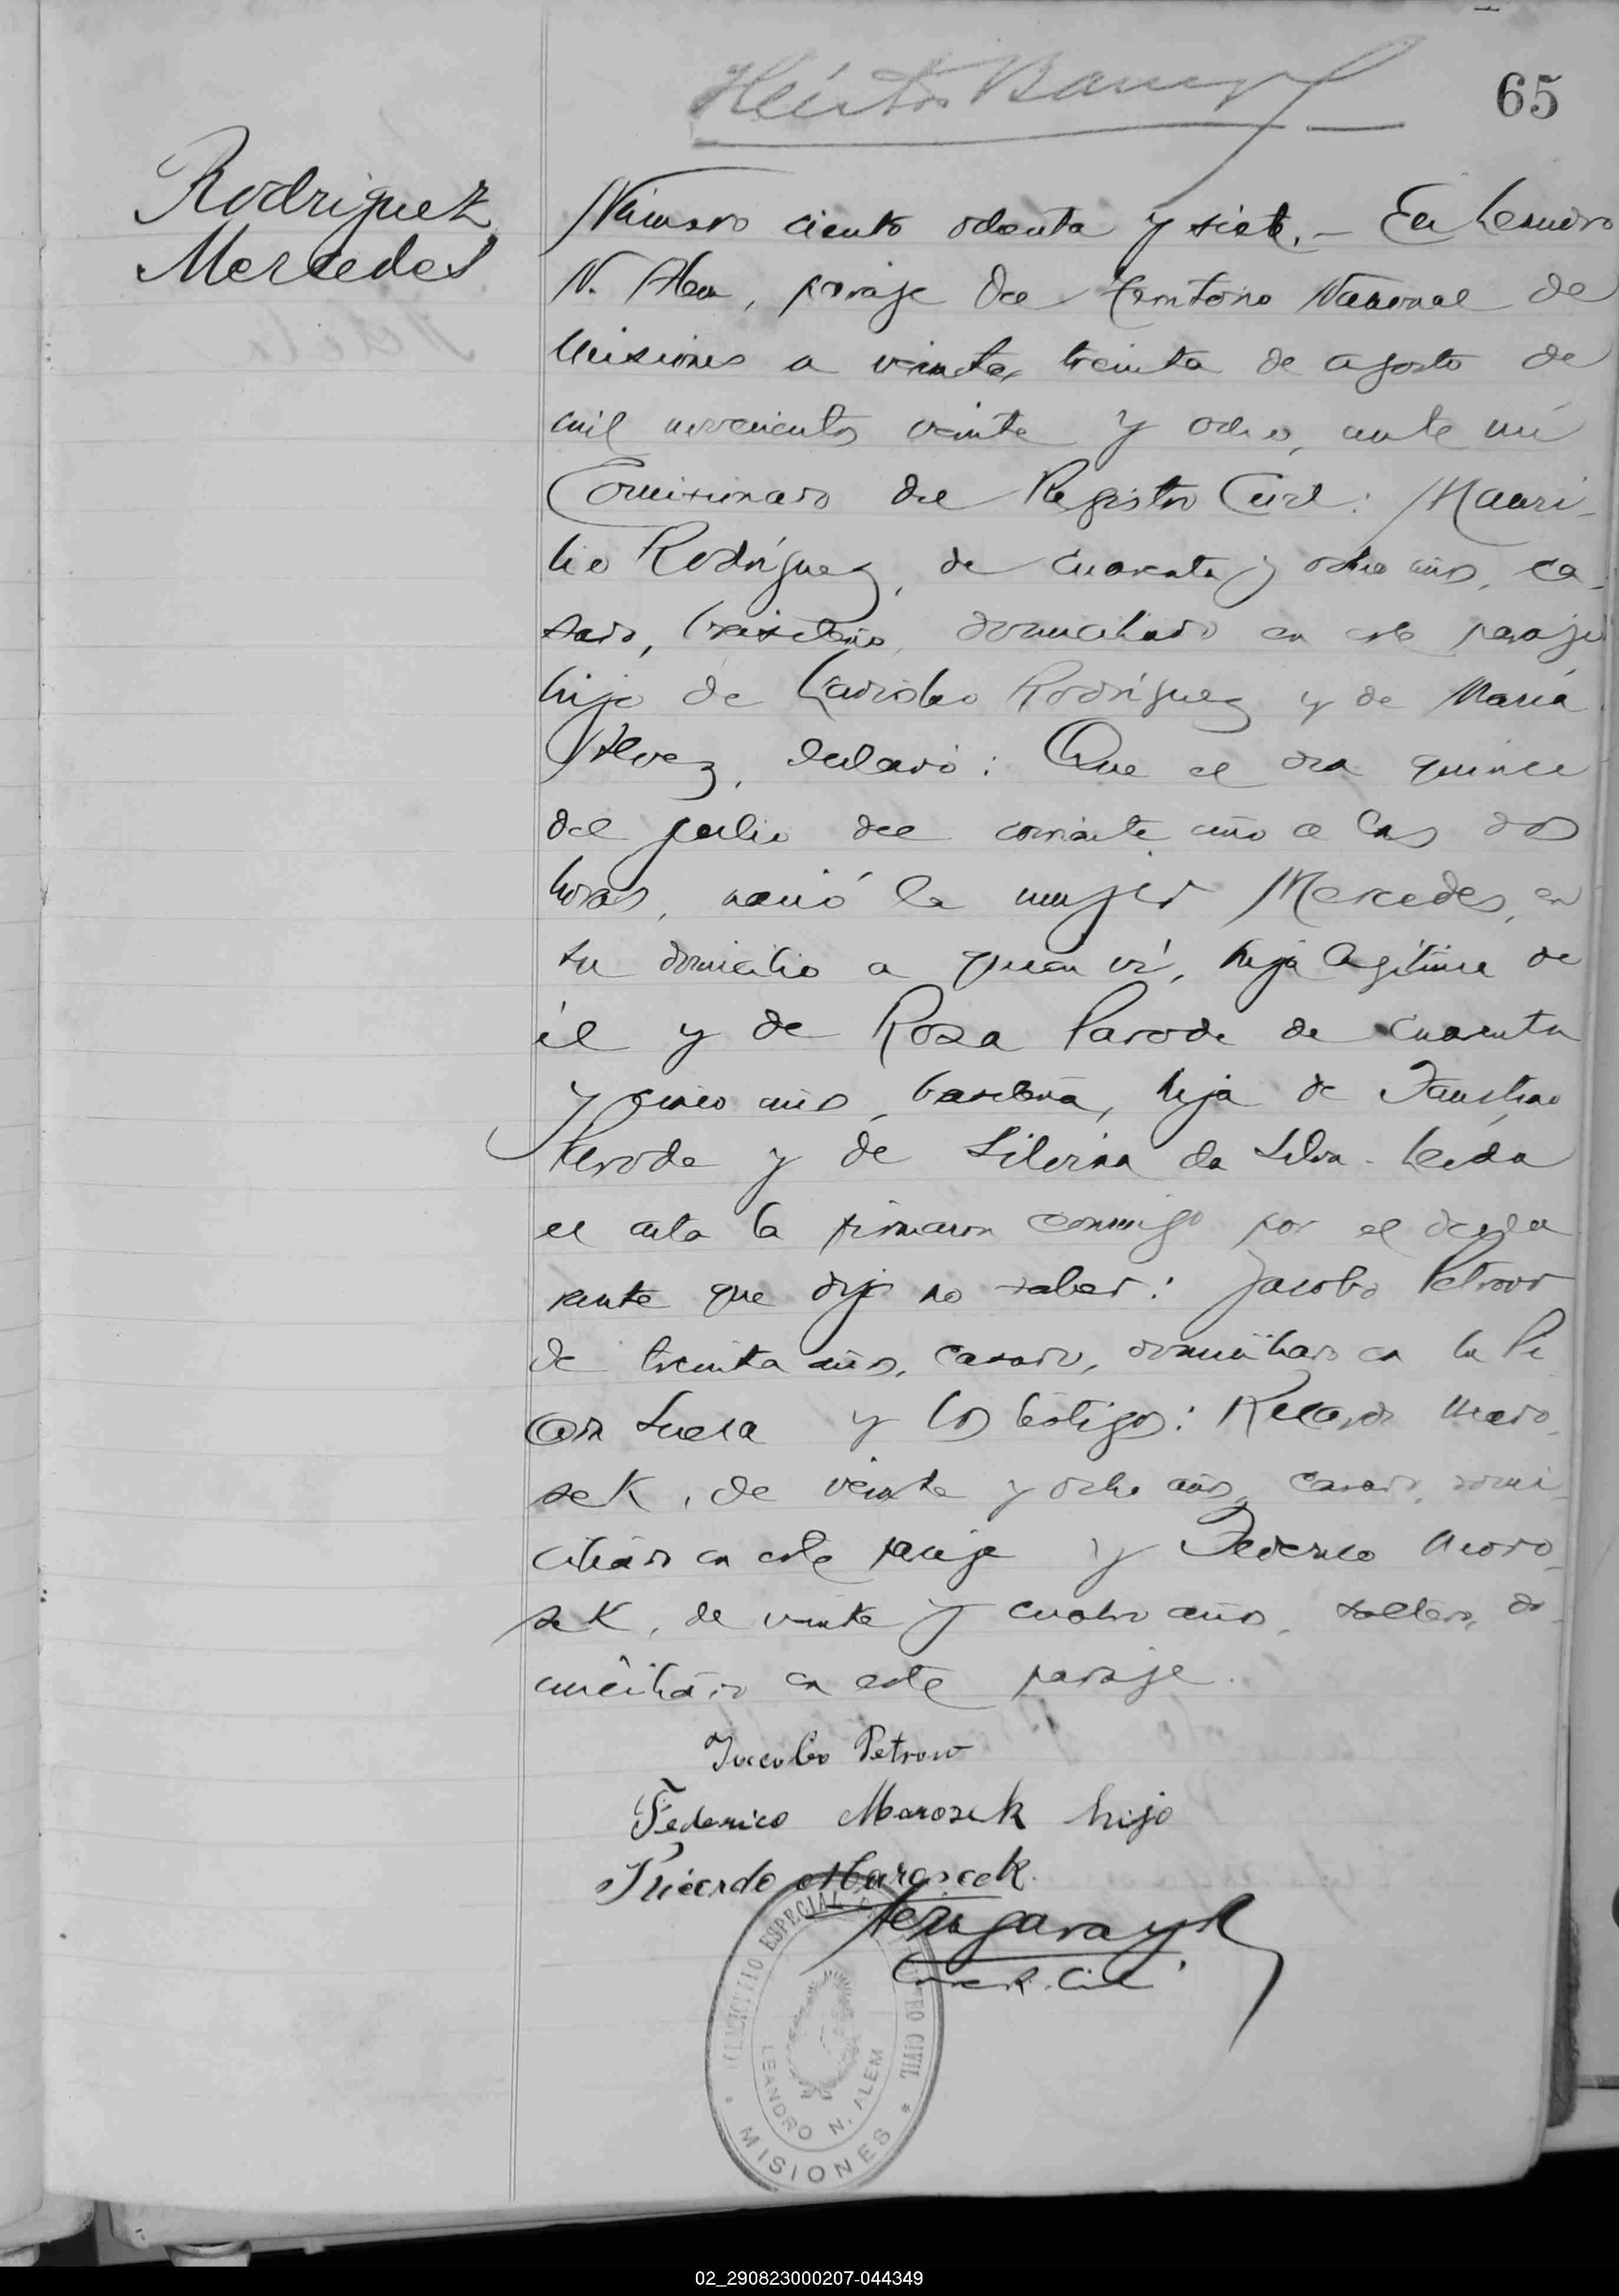 65
Rodriguez
Mercedes
Número ciento ochenta y siete.- En Leandro
N. Alem, paraje del Territorio Nacional de
Misiones a veinte, treinta de agosto de
mil novecientos veinte y ocho, ante mí
Comisionado del Registro Civil: Mauri-
lio Rodríguez, de cuarenta y ocho años, ca-
sado, brasileño, domiciliado en este paraje
hijo de Ladislao Rodríguez y de María
Alvez, declaró: Que el día quince
del julio del corriente año a las dos
horas, nació la mujer Mercedes, en
su domicilio a quien ví, hija legítima de
él y de Rosa Parode de cuarenta
y cinco años, brasileña, hija de Faustino
Parode y de Silvina da Silva. Leída
el acta la firmaron conmigo por el decla
rante que dijo no saber: Jacobo Petrow
de treinta años, casado, domiciliado en la Pi
cada Sueca y los testigos: Ricardo Maro-
sek, de veinte y ocho años, casado, domi-
ciliado en este paraje y Federico Maro-
sek, de veinte y cuatro años, soltero, do-
miciliado en este paraje.
Jacobo Petrow
Federico Marosek hijo
Ricardo Maroseek.
ESPECIAL
REGISTRO CIVIL
LEANDRO N. ALEM
* MISIONES *
02_290823000207-044349